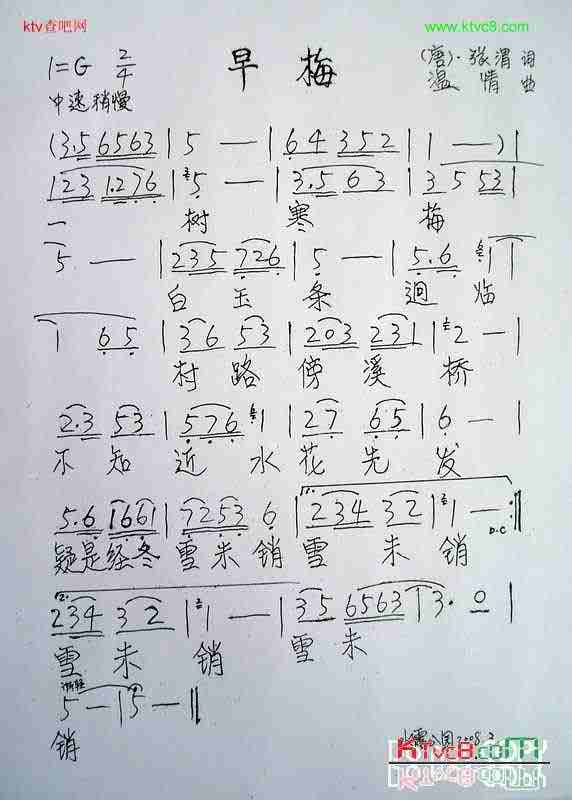 ktv查吧网 www.ktvc8.com
早梅
1=G 2/4 (唐)·张渭 词
中速稍慢 温情 曲
(3.5 6563 | 5 — | 64 352 | 1 — ) |
123 1.276 | 5 — | 3.5 63 | 3 5 53 |
一 树 寒 梅
5 — | 235 726 | 5 — | 5.6 1 |
白 玉 条 迥 临
1 65 | 36 53 | 203 231 | 2 — |
村 路 傍 溪 桥
2.3 53 | 576 1 | 27 65 | 6 — |
不 知 近 水 花 先 发
5.6 1661 | 7253 6 | 1. 234 32 | 1 — :||
D.C
疑是经冬 雪未销 雪 未 销
2. 234 32 | 1 — | 35 6563 | 3. 0 |
雪 未 销 雪 未
5 — | 5 — ||
销
2008.2
KTvc8.com